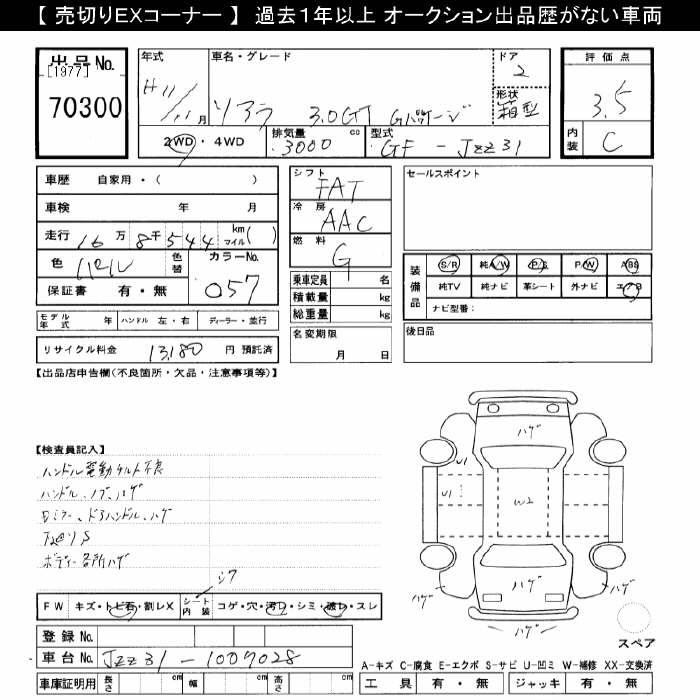 【 売切りEXコーナー 】 過去１年以上 オークション出品歴がない車両
出品No.
【1977】
70300
年式
H11/11月
車名・グレード
ソアラ 3.0GT Gパッケージ
ドア
2
形状
箱型
2WD・4WD
排気量 3000 cc
型式 GF - JZZ31
評価点
3.5
内装 C
車歴 自家用・( )
車検 年 月
走行 16万8千544 km マイル( )
色 パール 色替
カラーNo.
057
保証書 有・無
モデル年式 年 ハンドル 左・右 ディーラー・並行
リサイクル料金 13,180 円 預託済
シフト
FAT
冷房
AAC
燃料
G
乗車定員 名
積載量 kg
総重量 kg
名変期限
月 日
セールスポイント
装備品
S/R 純A/W P/S P/W ABS
純TV 純ナビ 革シート 外ナビ エアB
ナビ型番：
後日品
【出品店申告欄(不良箇所・欠品・注意事項等)】
【検査員記入】
ハンドル電動チルト不良
ハンドル、ノブ、ハゲ
Dミラー、ドアハンドル、ハゲ
下廻りS
ボディー各所ハゲ
シワ
FW キズ・トビ石・割レX シート内装 コゲ・穴・汚レ・シミ・破レ・スレ
登録No.
車台No. JZZ31-1007028
車庫証明用 長さ cm 幅 cm 高さ cm
ハゲ
U1
U1
W2
ハゲ
ハゲ
ハゲ
ハゲ
スペア
A-キズ C-腐食 E-エクボ S-サビ U-凹ミ W-補修 XX-交換済
工具 有・無 ジャッキ 有・無